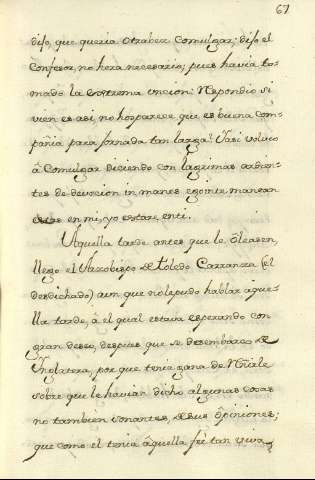 67
diso, que queria otrabez Comulgar; diso el
Confesor, no hera necesario; pues havia to=
mado la extrema uncion: Respondio si
vien es asi, no hosparece que es buena com=
pañia para jornada tan larga? Y asi volvio
à Comulgar diciendo con lagrimas ardien=
tes de devocion in manes egoint, maneam
en mi, yo estare enti.
Aquella tarde antes que le Oleasen,
llego el Arzobispo de Toledo Carranza (el
desdichado) aun que nolepudo hablar aque=
lla tarde, à el qual estava esperando con
gran deseo, despues que se desembarco de
Ynglaterra, por que tenia gana de
sobre que le havian dicho algunas cosas
no tambien sonantes, de sus òpiniones;
que como el tenia àquella fee tan viva,